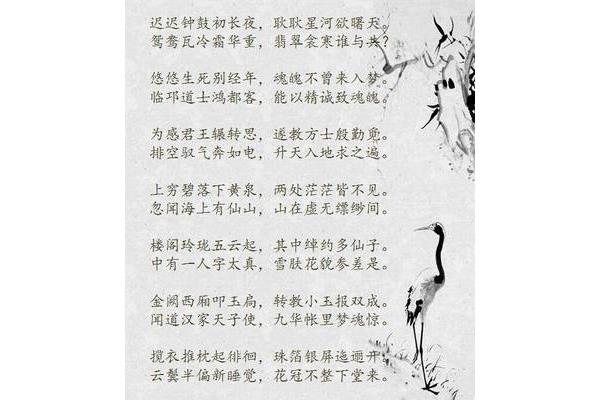 迟迟钟鼓初长夜，耿耿星河欲曙天。
鸳鸯瓦冷霜华重，翡翠衾寒谁与共？
悠悠生死别经年，魂魄不曾来入梦。
临邛道士鸿都客，能以精诚致魂魄。
为感君王辗转思，遂教方士殷勤觅。
排空驭气奔如电，升天入地求之遍。
上穷碧落下黄泉，两处茫茫皆不见。
忽闻海上有仙山，山在虚无缥缈间。
楼阁玲珑五云起，其中绰约多仙子。
中有一人字太真，雪肤花貌参差是。
金阙西厢叩玉扃，转教小玉报双成。
闻道汉家天子使，九华帐里梦魂惊。
揽衣推枕起徘徊，珠箔银屏迤逦开。
云鬓半偏新睡觉，花冠不整下堂来。